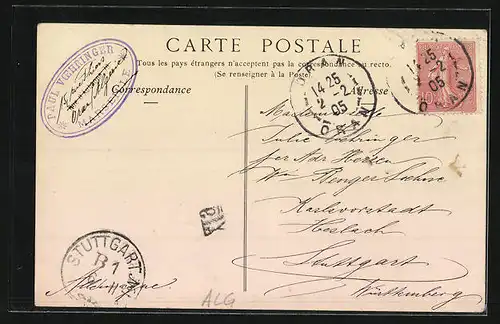 CARTE POSTALE
Tous les pays étrangers n'acceptent pas la correspondance au recto.
(Se renseigner à la Poste)
PAUL VŒHRINGER
MARSEILLE
Correspondance
Adresse
ORAN
14 25
2-2
05
ORAN
14 25
2-2
05
ORAN
10
Mademoiselle
Julie
per Adr
Karlsvorstadt
Heslach
Stuttgart
Württemberg
STUTTGART
B 1
Allemagne
ALG